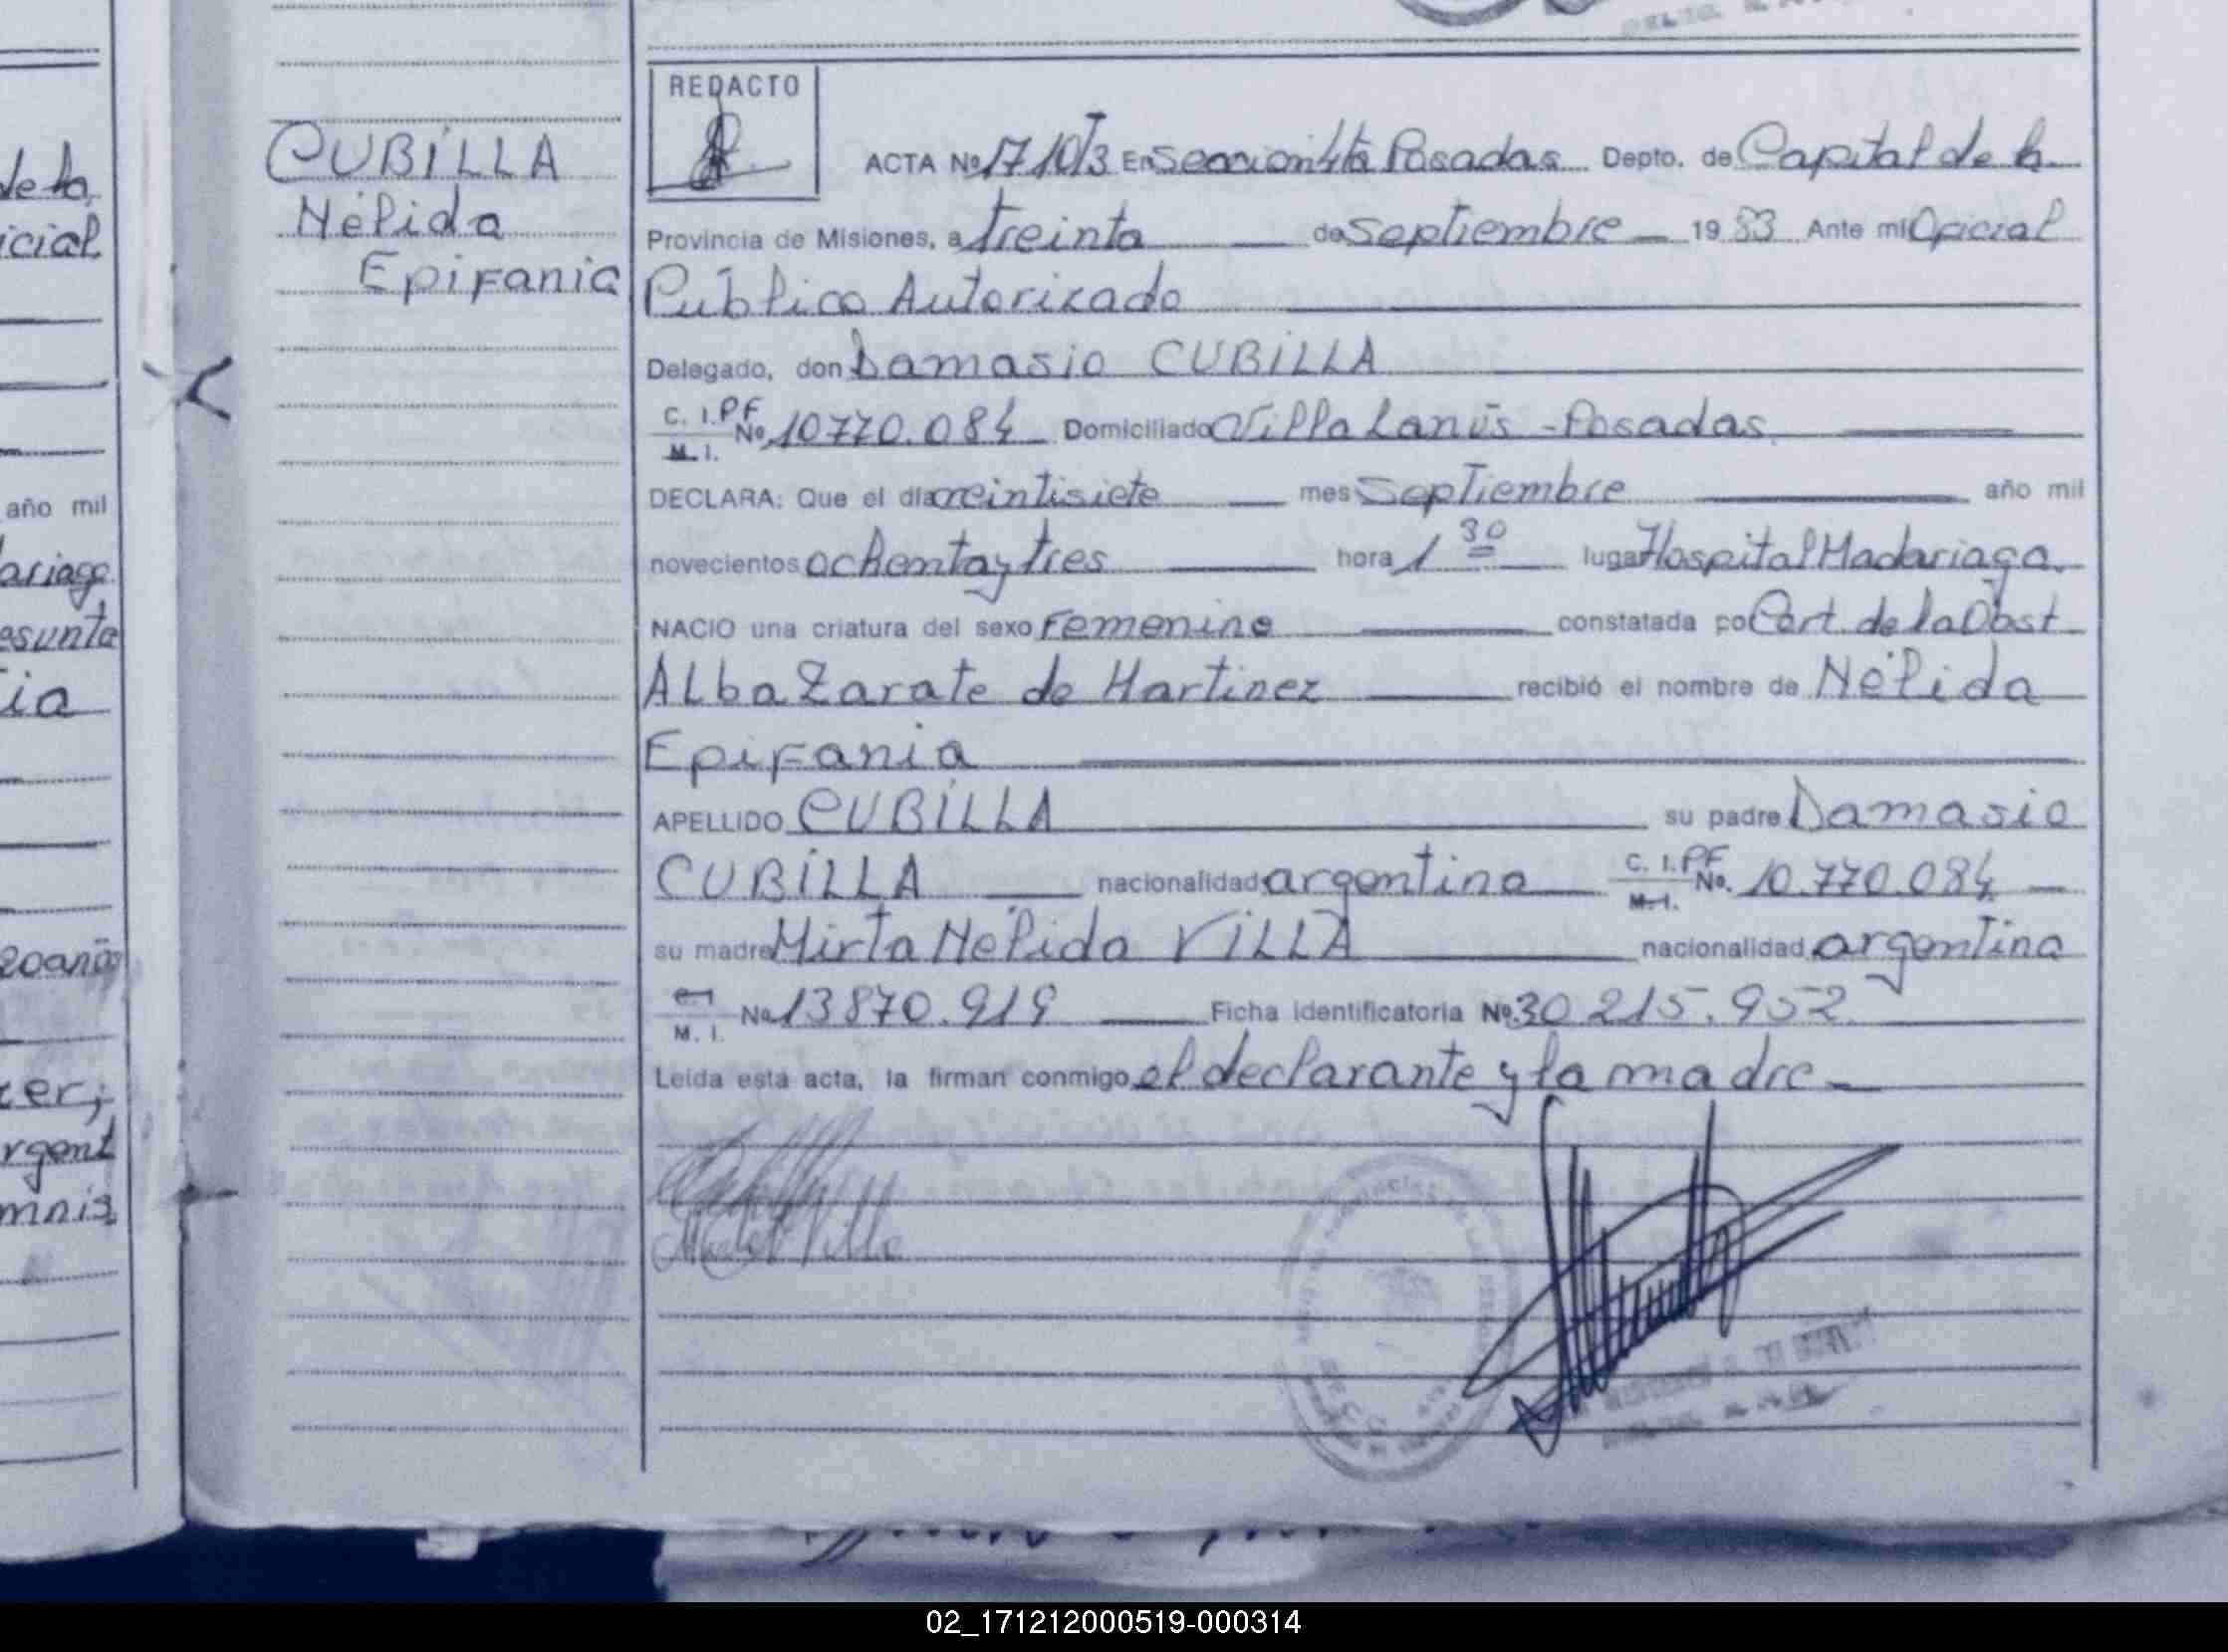 de la
icial.
año mil
ariaga
esunta
ia
20 años
zer;
rgent
mnis
CUBILLA
Nélida
Epifania
REDACTO
ACTA Nº 1710/T3 En Sección 4ta Posadas Depto. de Capital de la
Provincia de Misiones, a treinta de Septiembre 1983 Ante mi Oficial
Público Autorizado
Delegado, don Damasio CUBILLA
C. I. PF
M. I. Nº 10770.084 Domiciliado Villa Lanús - Posadas.
DECLARA: Que el día veintisiete mes Septiembre año mil
novecientos ochenta y tres hora 1 30 lugar Hospital Madariaga.
NACIO una criatura del sexo Femenino constatada por Cert. de la Obst
Alba Zarate de Martinez recibió el nombre de Nélida
Epifania
APELLIDO CUBILLA su padre Damasio
CUBILLA nacionalidad argentina C. I. PF M. I. No. 10.770.084
su madre Mirta Nélida VILLA nacionalidad argentina
M. I. Nº 13870.919 Ficha identificatoria Nº 30 215.952
Leída esta acta, la firman conmigo, el declarante y la madre
02_171212000519-000314